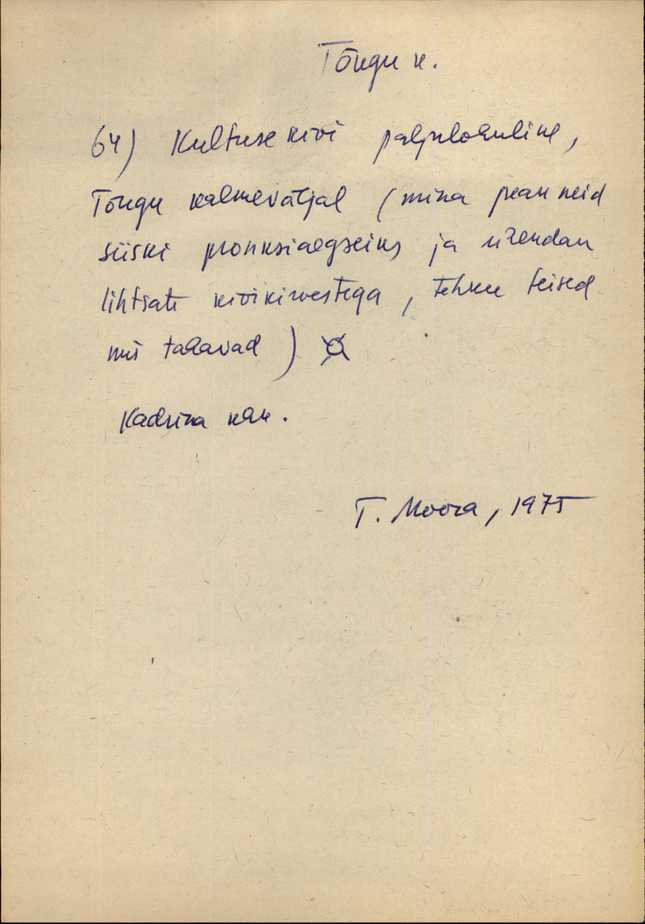 Tõugu k.
64) Kultusekivi paljulohuline,
Tõugu kalmeväljal (mina pean neid
siiski pronksiaegseiks ja ühendan
lihtsate kivikirvestega, tehku teised
mis tahavad)
Kadrina khk.
T. Moora, 1975